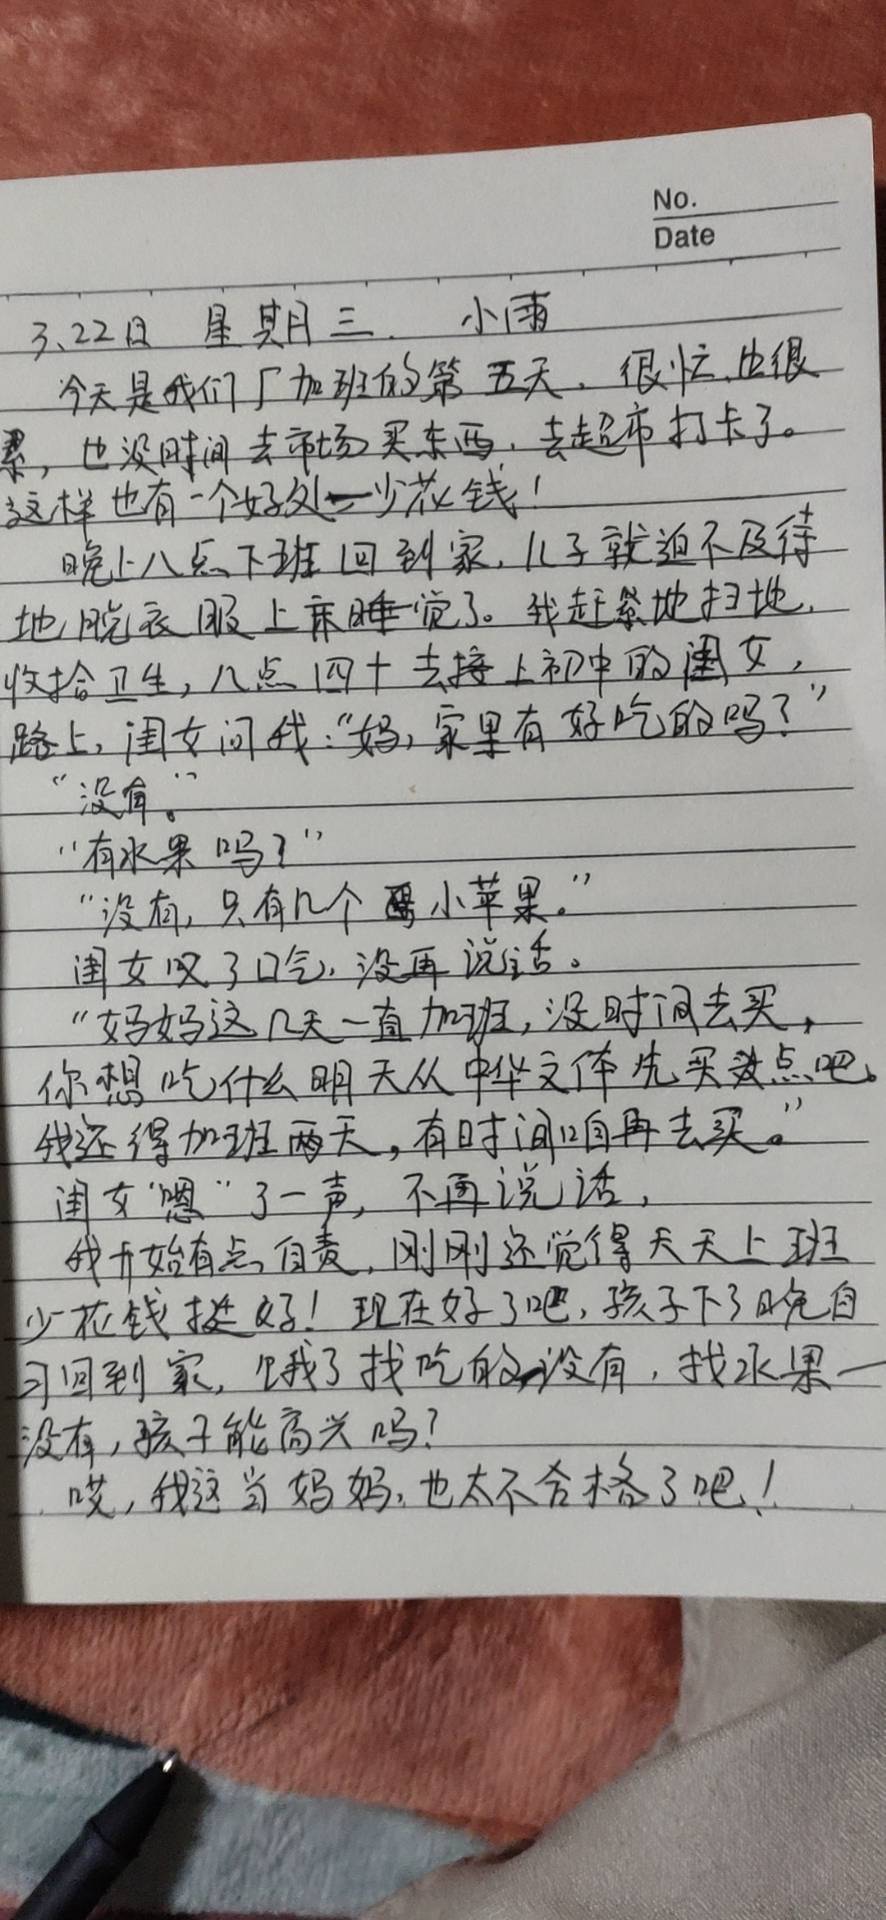 No.
Date
3、22日 星期三. 小雨
今天是我们厂加班的第五天，很忙、也很
累，也没时间去市场买东西，去超市打卡了。
这样也有一个好处—少花钱！
晚上八点下班回到家，儿子就迫不及待
地脱衣服上床睡觉了。我赶紧地扫地，
收拾卫生，八点四十去接上初中的闺女，
路上，闺女问我：“妈，家里有好吃的吗？”
“没有。”
“有水果吗？”
“没有，只有几个小苹果。”
闺女叹了口气，没再说话。
“妈妈这几天一直加班，没时间去买，
你想吃什么明天从中华文体先买点吧。
我还得加班两天，有时间咱再去买。”
闺女“嗯”了一声，不再说话，
我开始有点自责，刚刚还觉得天天上班
少花钱挺好！现在好了吧，孩子下了晚自
习回到家，饿了找吃的没有，找水果—
没有，孩子能高兴吗？
哎，我这当妈妈，也太不合格了吧！